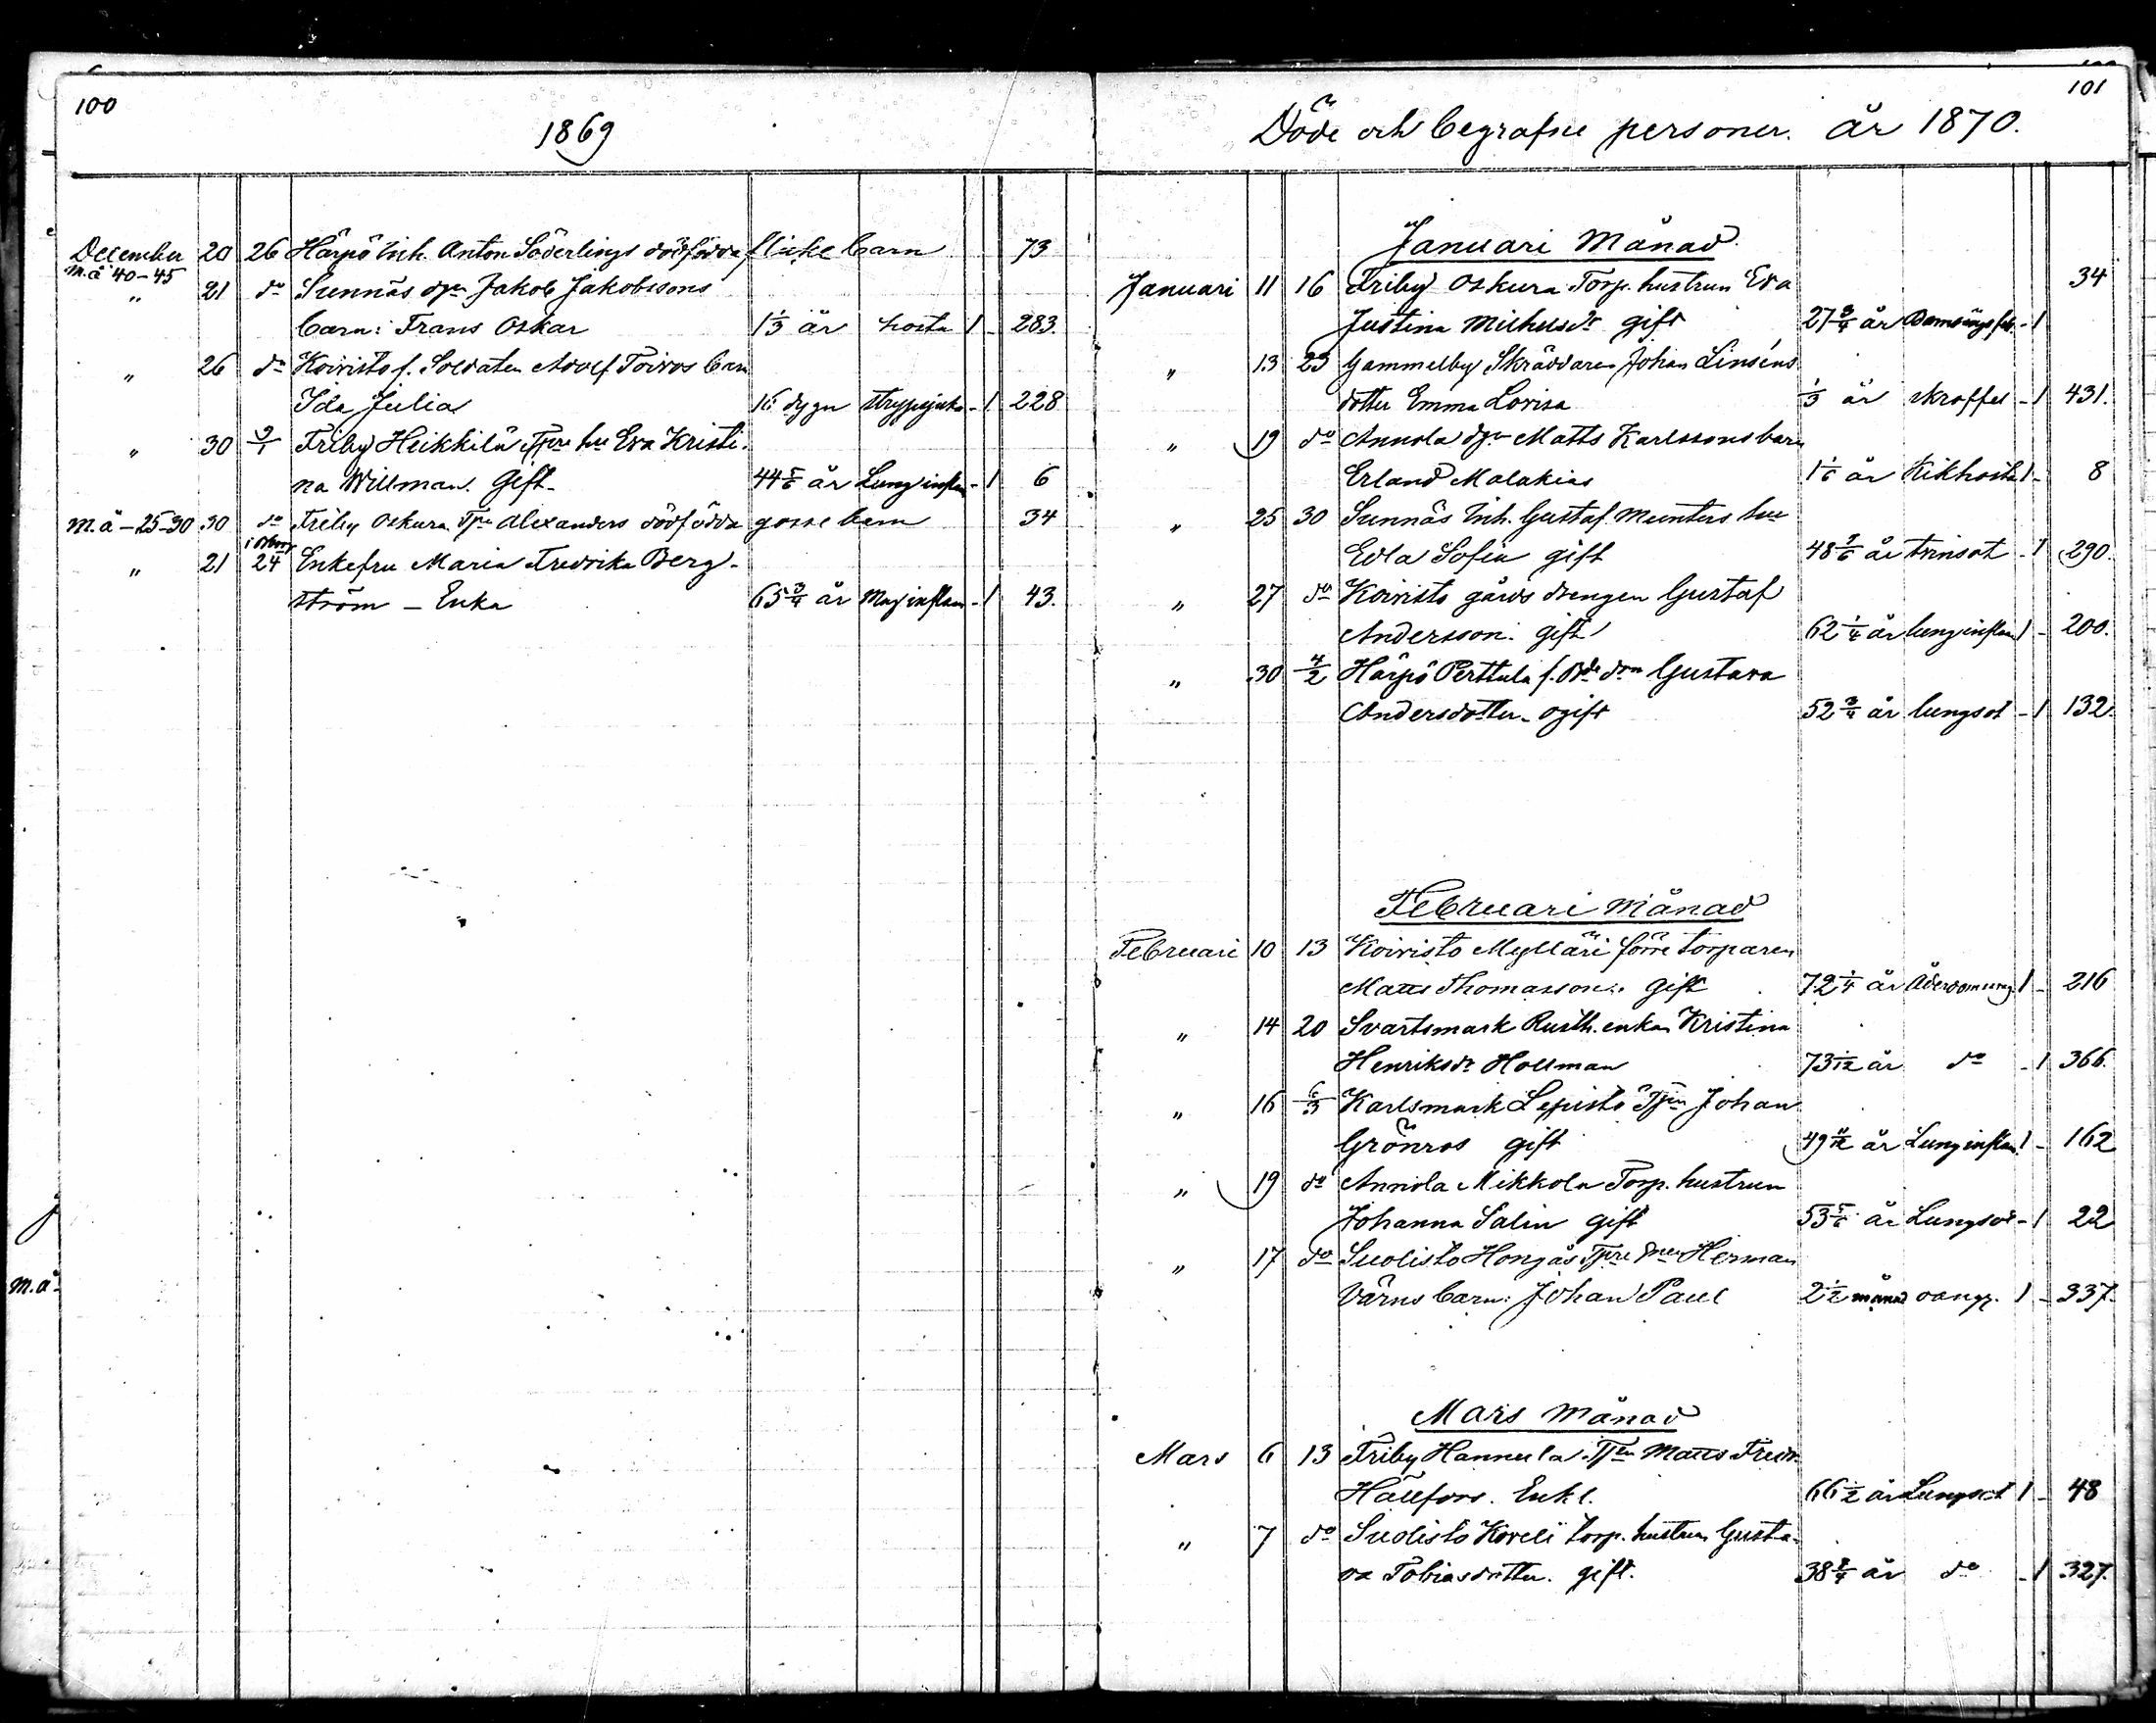 100
1869
December 20 26 Härpö Inh. Anton Söderlings dödfödda flicke barn 73
M.å 40-45
" 21 do Sunnäs dgn Jakob Jakobssons
barn: Frans Oskar 1 1/3 år hosta 1 - 283.
" 26 do Koivisto f. Soldaten Adolf Toivos barn
Ida Julia 16 dygn strypsjuka - 1 228
" 30 9/1 Friby Heikkilä Tpre hu Eva Kristi-
na Willman. Gift - 44 5/6 år Lunginflam - 1 6
M.å - 25-30 30 do Friby Oskura Tpr Alexanders dödfödda gosse barn 34
i Borgå
" 21 24 Enkefru Maria Fredrika Berg-
ström - Enka 65 3/4 år Maginflam - 1 43.
M.å.
101
Döde och begrafne personer. år 1870.
Januari Månad
Januari 11 16 Friby Oskura Torp. hustrun Eva 34
Justina Michelsdr gift 27 3/4 år Barnsängsfeb. - 1
" 13 23 Gammelby Skräddaren Johan Linséns
dotter Emma Lovisa 1/3 år skroffel - 1 431.
" 19 do Annola dgn Matts Karlssons barn
Erland Malakias 1 1/6 år Kikhosta 1 - 8
" 25 30 Sunnäs Inh. Gustaf Munters hu
Edla Sofia gift 48 år trinsot - 1 290.
" 27 do Koivisto gårds drengen Gustaf
Andersson. gift 62 1/4 år lunginflam 1 - 200.
" 30 4/2 Härpö Perttula f. Bde drn Gustava
Andersdotter. ogift 52 3/4 år lungsot - 1 132.
Februari Månad
Februari 10 13 Koivisto Mylläri förre torparen
Matts Thomasson. gift 72 1/4 år Ålderdomsung. 1 - 216
" 14 20 Svartsmark Rusth. enkan Kristina
Henriksdr Hollman 73 1/12 år do - 1 366.
" 16 6/3 Karlsmark Lepistö Tpn Johan
Grönros gift 49 år Lunginflam 1 - 162
" 19 do Annola Mikkola Torp. hustrun
Johanna Salin gift 53 5/6 år Lungsot - 1 22
" 17 do Suolisto Hongas Tpre Herman
Värns barn: Johan Paul 2 1/2 månad oangf. 1 - 337.
Mars Månad
Mars 6 13 Friby Hannula Tpn Matts Fredr.
Hällfors. Enkl. 66 1/2 år Lungsot 1 - 48
" 7 do Suolisto Koveli torp. hustrun Gusta-
va Tobiasdotter. gift. 38 3/4 år do - 1 327.